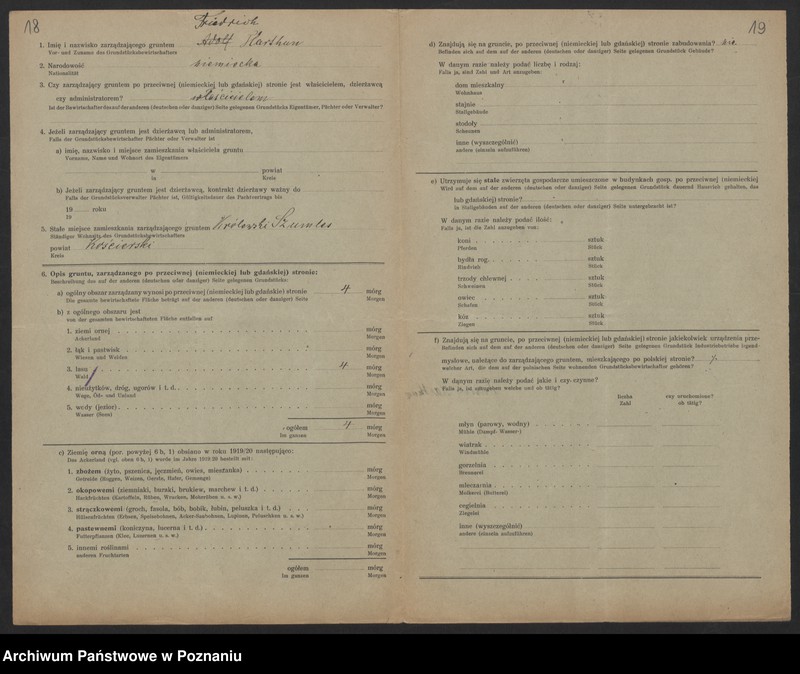 18
Friedrich
1. Imię i nazwisko zarządzającego gruntem Adolf Karthun
Vor- und Zuname des Grundstücksbewirtschafters
2. Narodowość niemiecka
Nationalität
3. Czy zarządzający gruntem po przeciwnej (niemieckiej lub gdańskiej) stronie jest właścicielem, dzierżawcą
czy administratorem? właścicielem
Ist der Bewirtschafter des auf der anderen (deutschen oder danziger) Seite gelegenen Grundstücks Eigentümer, Pächter oder Verwalter?
4. Jeżeli zarządzający gruntem jest dzierżawcą lub administratorem,
Falls der Grundstücksbewirtschafter Pächter oder Verwalter ist
a) imię, nazwisko i miejsce zamieszkania właściciela gruntu
Vorname, Name und Wohnort des Eigentümers
w powiat
in Kreis
b) Jeżeli zarządzający gruntem jest dzierżawcą, kontrakt dzierżawy ważny do
Falls der Grundstücksverwalter Pächter ist, Gültigkeitsdauer des Pachtvertrags bis
19 roku
19
5. Stałe miejsce zamieszkania zarządzającego gruntem
Ständiger Wohnsitz des Grundstücksbewirtschafters
powiat Kościerski
Kreis
6. Opis gruntu, zarządzanego po przeciwnej (niemieckiej lub gdańskiej) stronie:
Beschreibung des auf der anderen (deutschen oder danziger) Seite gelegenen Grundstücks:
a) ogólny obszar zarządzany wynosi po przeciwnej (niemieckiej lub gdańskiej) stronie 4 mórg
Die gesamte bewirtschaftete Fläche beträgt auf der anderen (deutschen oder danziger) Seite Morgen
b) z ogólnego obszaru jest
von der gesamten bewirtschafteten Fläche entfallen auf
1. ziemi ornej mórg
Ackerland Morgen
2. łąk i pastwisk mórg
Wiesen und Weiden Morgen
3. lasu 4 mórg
Wald Morgen
4. nieużytków, dróg, ugorów i t. d. mórg
Wege, Öd- und Unland Morgen
5. wody (jezior) mórg
Wasser (Seen) Morgen
ogółem 4 mórg
Im ganzen Morgen
c) Ziemię orną (por. powyżej 6 b, 1) obsiano w roku 1919/20 następująco:
Das Ackerland (vgl. oben 6 b, 1) wurde im Jahre 1919/20 bestellt mit:
1. zbożem (żyto, pszenica, jęczmień, owies, mieszanka) mórg
Getreide (Roggen, Weizen, Gerste, Hafer, Gemenge) Morgen
2. okopowemi (ziemniaki, buraki, brukiew, marchew i t. d.) mórg
Hackfrüchten (Kartoffeln, Rüben, Wrucken, Mohrrüben u. s. w.) Morgen
3. strączkowemi (groch, fasola, bób, bobik, łubin, peluszka i t. d.) mórg
Hülsenfrüchten (Erbsen, Speisebohnen, Acker-Saubohnen, Lupinen, Peluschken u. s. w.) Morgen
4. pastewnemi (koniczyna, lucerna i t. d.) mórg
Futterpflanzen (Klee, Luzernen u. s. w.) Morgen
5. innemi roślinami mórg
anderen Fruchtarten Morgen
ogółem mórg
Im ganzen Morgen
19
d) Znajdują się na gruncie, po przeciwnej (niemieckiej lub gdańskiej) stronie zabudowania? nie
Befinden sich auf dem auf der anderen (deutschen oder danziger) Seite gelegenen Grundstück Gebäude?
W danym razie należy podać liczbę i rodzaj:
Falls ja, sind Zahl und Art anzugeben:
dom mieszkalny
Wohnhaus
stajnie
Stallgebäude
stodoły
Scheunen
inne (wyszczególnić)
andere (einzeln aufzuführen)
e) Utrzymuje się stale zwierzęta gospodarcze umieszczone w budynkach gosp. po przeciwnej (niemieckiej
Wird auf dem auf der anderen (deutschen oder danziger) Seite gelegenen Grundstück dauernd Hausvieh gehalten, das
lub gdańskiej) stronie?
in Stallgebäuden auf der anderen (deutschen oder danziger) Seite untergebracht ist?
W danym razie należy podać ilość:
Falls ja, ist die Zahl anzugeben von:
koni sztuk
Pferden Stück
bydła rog. sztuk
Rindvieh Stück
trzody chlewnej sztuk
Schweinen Stück
owiec sztuk
Schafen Stück
kóz sztuk
Ziegen Stück
f) Znajdują się na gruncie, po przeciwnej (niemieckiej lub gdańskiej) stronie jakiekolwiek urządzenia prze-
Befinden sich auf dem auf der anderen (deutschen oder danziger) Seite gelegenen Grundstück Industriebetriebe irgend-
mysłowe, należące do zarządzającego gruntem, mieszkającego po polskiej stronie?
welcher Art, die dem auf der polnischen Seite wohnenden Grundstücksbewirtschafter gehören?
W danym razie należy podać jakie i czy czynne?
Falls ja, ist anzugeben welche und ob tätig?
liczba czy uruchomione?
Zahl ob tätig?
młyn (parowy, wodny)
Mühle (Dampf- Wasser-)
wiatrak
Windmühle
gorzelnia
Brennerei
mleczarnia
Molkerei (Butterei)
cegielnia
Ziegelei
inne (wyszczególnić)
andere (einzeln aufzuführen)
Archiwum Państwowe w Poznaniu